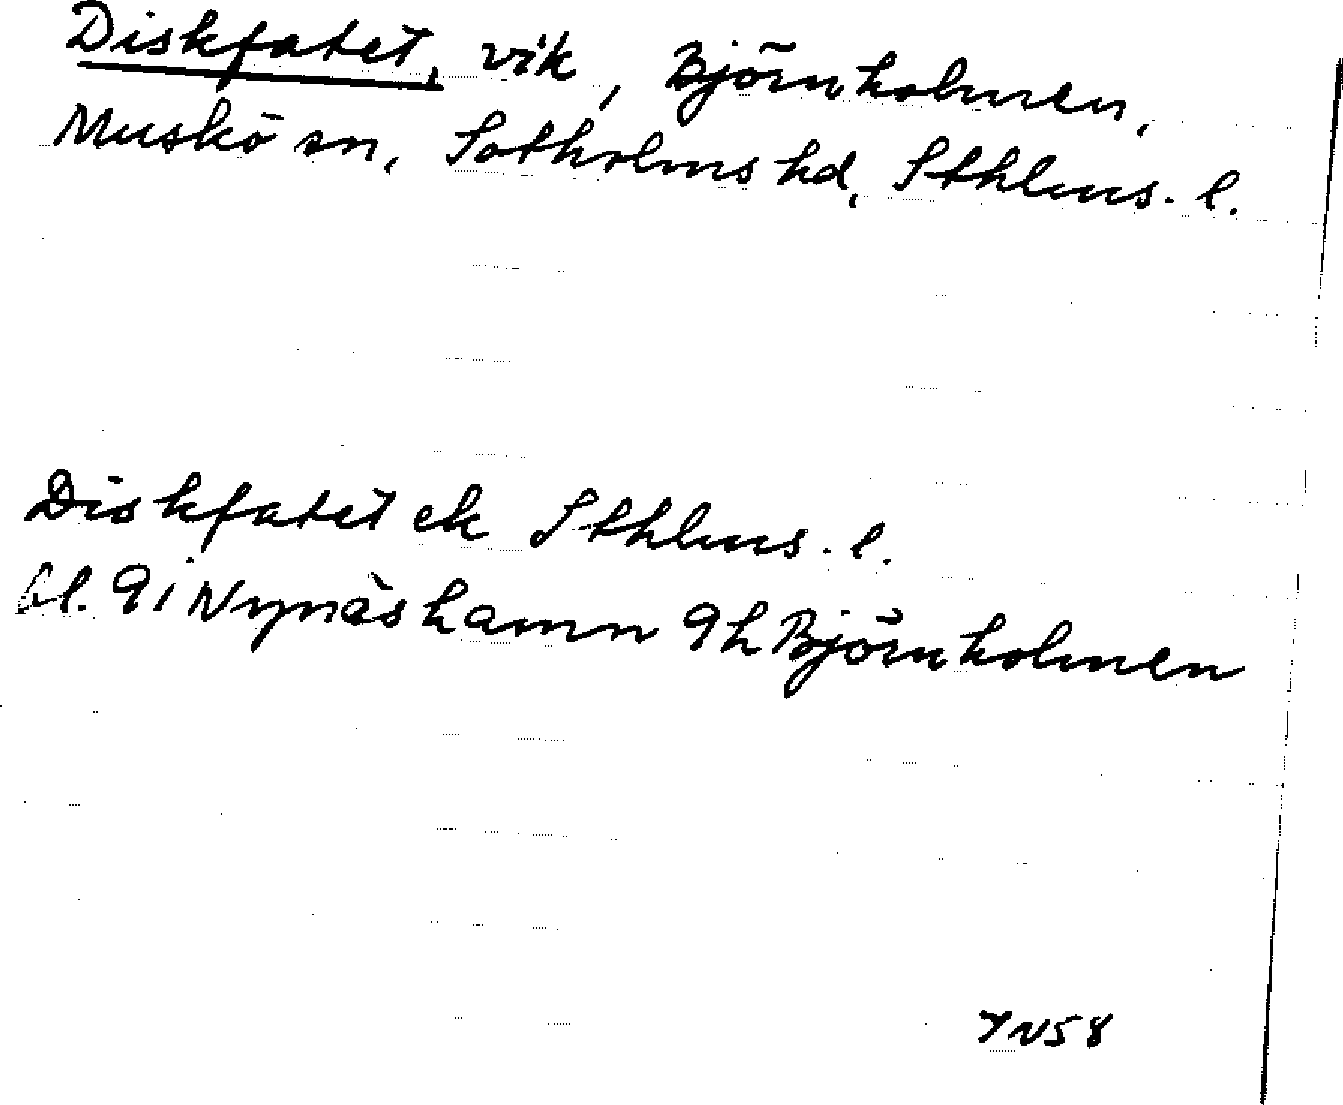 Diskfatet, vik, Björnholmen,
Muskö sn, Sotholms hd, Sthlms. l.
Diskfatet ek Sthlms. l.
bl. 9i Nynäshamn 9h Björnholmen
YN58